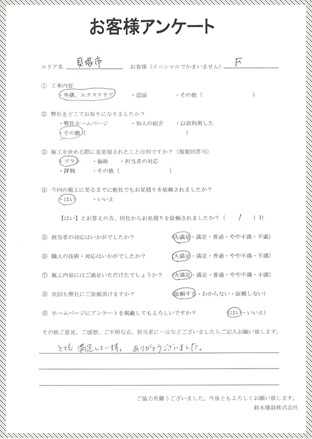 お客様アンケート
エリア名 貝塚市 お客様（イニシャルでかまいません） F
① 工事内容
・外構、エクステリア ・造園 ・その他（ ）
② 弊社をどこでお知りになりましたか？
・弊社ホームページ ・知人の紹介 ・以前利用した
・その他（ ）
③ 施工を決める際に重要視されたことは何ですか？（複数回答可）
・プラン ・価格 ・担当者の対応
・評判 ・その他（ ）
④ 今回の施工に至るまでに他社でもお見積りを依頼されましたか？
・はい ・いいえ
【はい】とお答えの方、何社からお見積りを依頼されましたか？（ 1 ）社
⑤ 担当者の対応はいかがでしたか？ （大満足・満足・普通・やや不満・不満）
⑥ 職人の技術・対応はいかがでしたか？ （大満足・満足・普通・やや不満・不満）
⑦ 施工内容にはご満足いただけたでしょうか？ （大満足・満足・普通・やや不満・不満）
⑧ 次回も弊社にご依頼頂けますか？ （依頼する・わからない・依頼しない）
⑨ ホームページにアンケートを掲載してもよろしいですか？ （はい・いいえ）
その他ご意見、ご感想、ご不明な点、担当者に一言などございましたらご記入お願い致します。
とても 満足しています。 ありがとうございました。
ご協力有難うございました。今後ともよろしくお願い致します。
鈴木建設株式会社